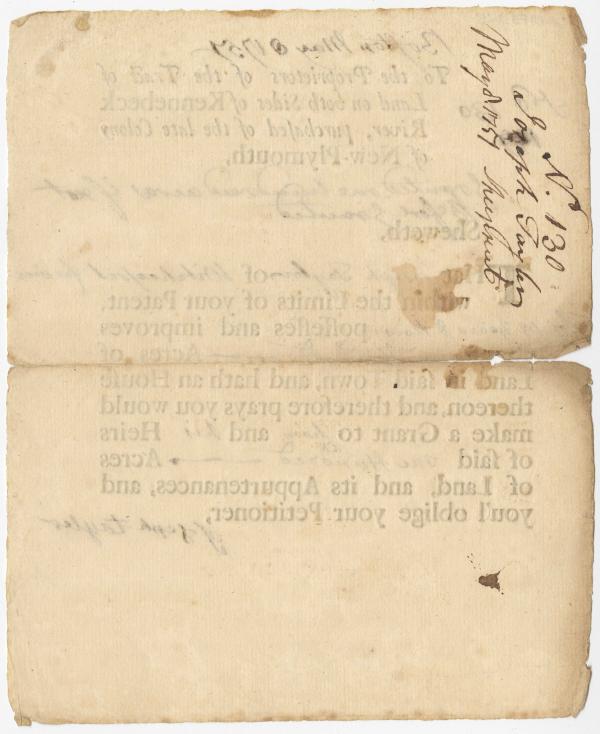 N.º 130
Joseph Taylor
May 8 1757
Boston May 8 1757
To the Proprietors of the Tract of
Land on both Sides of Kennebeck
River, purchased of the late Colony
of New-Plymouth,
Sheweth,
Taylor of
within the Limits of your Patent,
possesses and improves
Acres of
Land in said Town, and hath an House
thereon, and therefore prays you would
make a Grant to him and his Heirs
of said one Hundred Acres
of Land, and its Appurtenances, and
you'l oblige your Petitioner,
Joseph Taylor